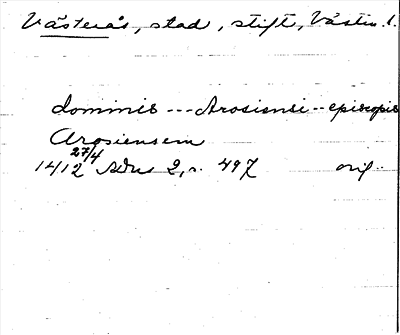 Västerås, stad, stift, Västm. l.
dominis --- Arosiensi -- episcopis
Arosiensem
27/4
1412 SDns 2, s. 497 orig.